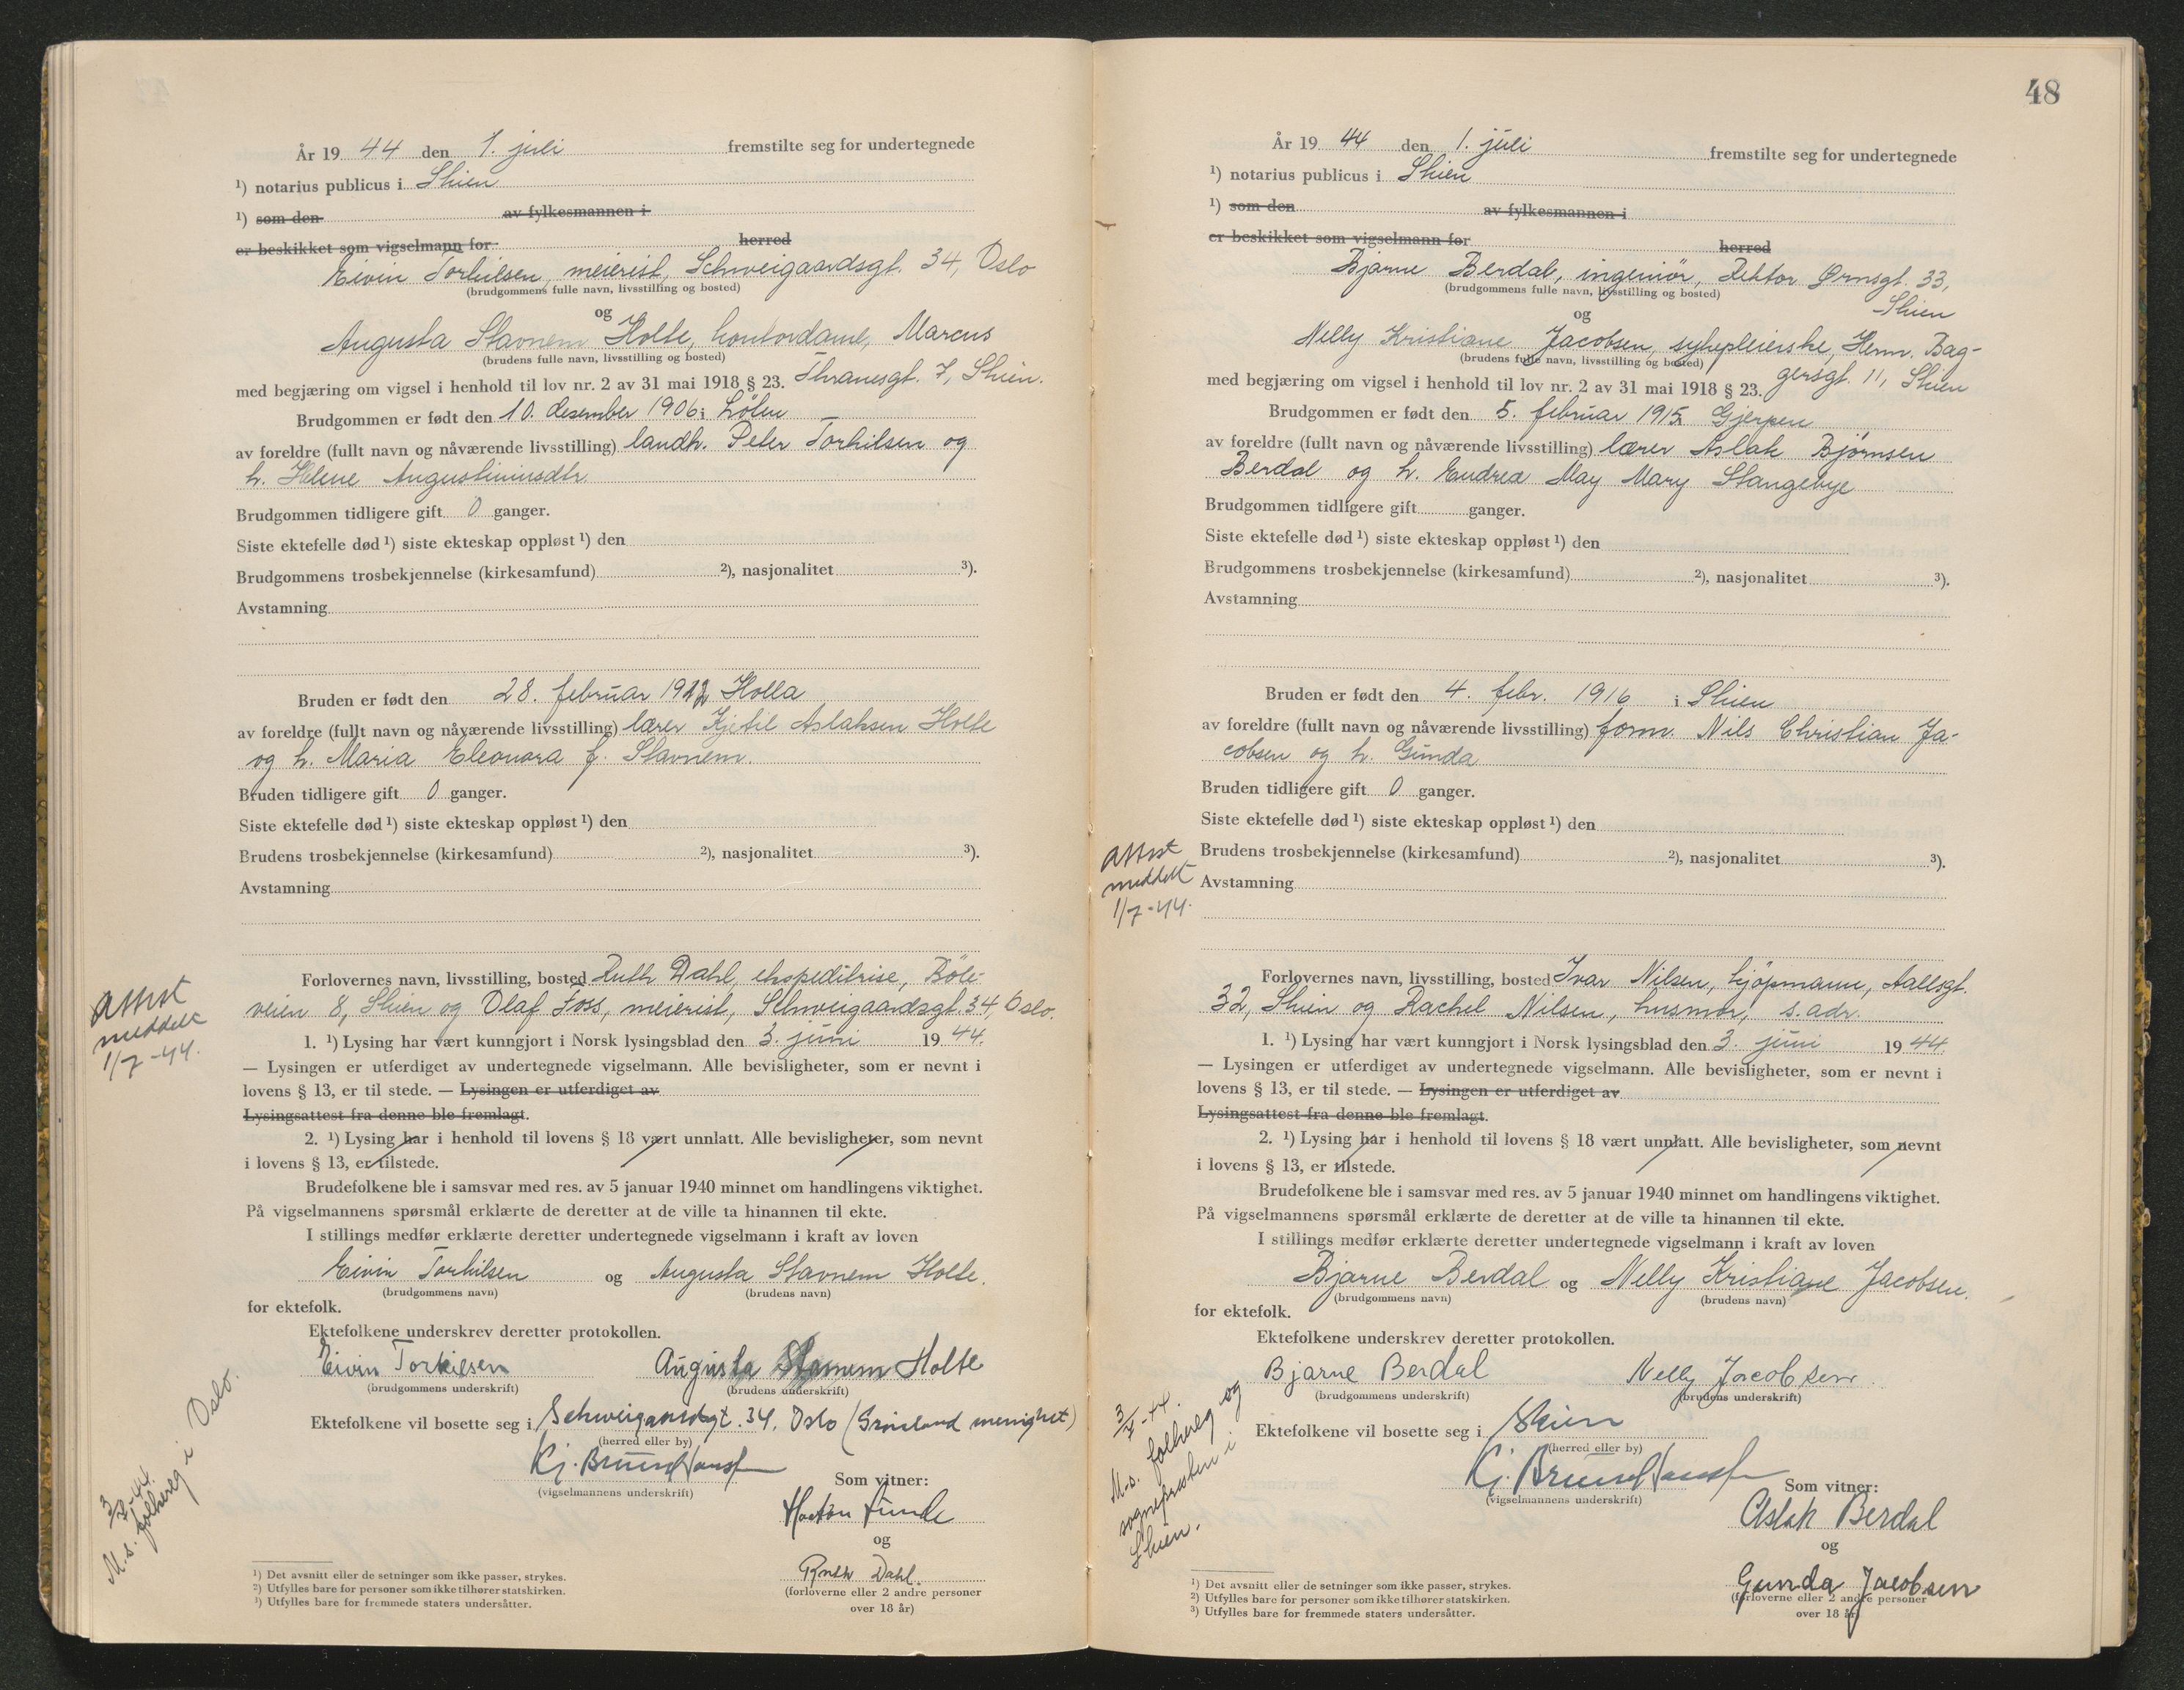 År 19 44 den 1. juli fremstilte seg for undertegnede
¹) notarius publicus i Skien
¹) som den av fylkesmannen i
er beskikket som vigselmann for herred
Eivin Torkilsen, meierist, Schweigaardsgt. 34, Oslo
(brudgommens fulle navn, livsstilling og bosted)
og
Augusta Stavnem Holte, kontordame, Marcus
(brudens fulle navn, livsstilling og bosted)
med begjæring om vigsel i henhold til lov nr. 2 av 31 mai 1918 § 23. Thranesgt. 7, Skien.
Brudgommen er født den 10. desember 1906 i Löten
av foreldre (fullt navn og nåværende livsstilling) landh. Peter Torkilsen og
h. Helene Augustinusdtr.
Brudgommen tidligere gift 0 ganger.
Siste ektefelle død ¹) siste ekteskap oppløst ¹) den
Brudgommens trosbekjennelse (kirkesamfund) ²), nasjonalitet ³).
Avstamning
Bruden er født den 28. februar 1912 Holla
av foreldre (fullt navn og nåværende livsstilling) lærer Kjetil Aslaksen Holte
og h. Maria Eleonora f. Stavnem.
Bruden tidligere gift 0 ganger.
Siste ektefelle død ¹) siste ekteskap oppløst ¹) den
Brudens trosbekjennelse (kirkesamfund) ²), nasjonalitet ³).
Avstamning
Attest
meddelt
1/7-44.
Forlovernes navn, livsstilling, bosted Ruth Dahl, ekspeditrise, Böle-
veien 8, Skien og Olaf Foss, meierist, Schweigaardsgt. 34, Oslo.
1. ¹) Lysing har vært kunngjort i Norsk lysingsblad den 3. juni 19 44.
— Lysingen er utferdiget av undertegnede vigselmann. Alle bevisligheter, som er nevnt i
lovens § 13, er til stede. — Lysingen er utferdiget av
Lysingsattest fra denne ble fremlagt.
2. ¹) Lysing har i henhold til lovens § 18 vært unnlatt. Alle bevisligheter, som nevnt
i lovens § 13, er tilstede.
Brudefolkene ble i samsvar med res. av 5 januar 1940 minnet om handlingens viktighet.
På vigselmannens spørsmål erklærte de deretter at de ville ta hinannen til ekte.
I stillings medfør erklærte deretter undertegnede vigselmann i kraft av loven
Eivin Torkilsen og Augusta Stavnem Holte.
(brudgommens navn) (brudens navn)
for ektefolk.
Ektefolkene underskrev deretter protokollen.
Eivin Torkilsen Augusta Stavnem Holte
(brudgommens underskrift) (brudens underskrift)
Ektefolkene vil bosette seg i Schweigaardsgt. 34, Oslo (Grönland menighet)
(herred eller by)
Kj. Bruun Hansen
(vigselmannens underskrift)
Som vitner:
og
Ruth Dahl.
(forloverne eller 2 andre personer
over 18 år)
M.s. folkereg i Oslo.
¹) Det avsnitt eller de setninger som ikke passer, strykes.
²) Utfylles bare for personer som ikke tilhører statskirken.
³) Utfylles bare for fremmede staters undersåtter.
48
År 19 44 den 1. juli fremstilte seg for undertegnede
¹) notarius publicus i Skien
¹) som den av fylkesmannen i
er beskikket som vigselmann for herred
Bjarne Berdal, ingeniör, Rektor Ørnsgt. 33,
(brudgommens fulle navn, livsstilling og bosted) Skien
og
Nelly Kristiane Jacobsen, sykepleierske, Herm. Bag-
(brudens fulle navn, livsstilling og bosted)
med begjæring om vigsel i henhold til lov nr. 2 av 31 mai 1918 § 23. gersgt. 11, Skien
Brudgommen er født den 5. februar 1915 Gjerpen
av foreldre (fullt navn og nåværende livsstilling) lærer Aslak Bjørnsen
Berdal og h. Endrea May Mary Stangebye
Brudgommen tidligere gift ganger.
Siste ektefelle død ¹) siste ekteskap oppløst ¹) den
Brudgommens trosbekjennelse (kirkesamfund) ²), nasjonalitet ³).
Avstamning
Bruden er født den 4. febr. 1916 i Skien
av foreldre (fullt navn og nåværende livsstilling) form. Nils Christian Ja-
cobsen og h. Gunda
Bruden tidligere gift 0 ganger.
Siste ektefelle død ¹) siste ekteskap oppløst ¹) den
Brudens trosbekjennelse (kirkesamfund) ²), nasjonalitet ³).
Avstamning
Attest
meddelt
1/7-44.
Forlovernes navn, livsstilling, bosted Ivar Nilsen, kjöpmann, Aallsgt.
32, Skien og Rachel Nilsen, husmor, s. adr.
1. ¹) Lysing har vært kunngjort i Norsk lysingsblad den 3. juni 19 44.
— Lysingen er utferdiget av undertegnede vigselmann. Alle bevisligheter, som er nevnt i
lovens § 13, er til stede. — Lysingen er utferdiget av
Lysingsattest fra denne ble fremlagt.
2. ¹) Lysing har i henhold til lovens § 18 vært unnlatt. Alle bevisligheter, som nevnt
i lovens § 13, er tilstede.
Brudefolkene ble i samsvar med res. av 5 januar 1940 minnet om handlingens viktighet.
På vigselmannens spørsmål erklærte de deretter at de ville ta hinannen til ekte.
I stillings medfør erklærte deretter undertegnede vigselmann i kraft av loven
Bjarne Berdal og Nelly Kristiane Jacobsen.
(brudgommens navn) (brudens navn)
for ektefolk.
Ektefolkene underskrev deretter protokollen.
Bjarne Berdal Nelly Jacobsen
(brudgommens underskrift) (brudens underskrift)
Ektefolkene vil bosette seg i Skien
(herred eller by)
Kj. Bruun Hansen
(vigselmannens underskrift)
Som vitner:
Aslak Berdal
og
Gunda Jacobsen
(forloverne eller 2 andre personer
over 18 år)
M.s. folkereg og
sognepresten i
Skien.
¹) Det avsnitt eller de setninger som ikke passer, strykes.
²) Utfylles bare for personer som ikke tilhører statskirken.
³) Utfylles bare for fremmede staters undersåtter.